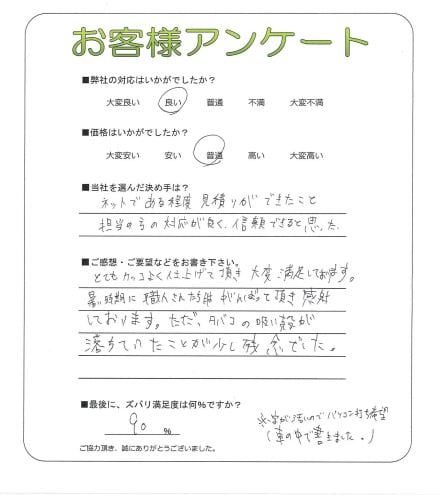 お客様アンケート
■弊社の対応はいかがでしたか？
大変良い 良い 普通 不満 大変不満
■価格はいかがでしたか？
大変安い 安い 普通 高い 大変高い
■当社を選んだ決め手は？
ネットである程度見積りができたこと
担当の方の対応が良く、信頼できると思った
■ご感想・ご要望などをお書き下さい。
とてもカッコよく仕上げて頂き大変満足しております。
暑い時期に職人さんたちががんばって頂き感謝
しております。ただ、タバコの吸い殻が
落ちていたことが少し残念でした。
■最後に、ズバリ満足度は何%ですか？
90 %
※字が汚いのでパソコン打ち希望
(車の中で書きました。)
ご協力頂き、誠にありがとうございました。